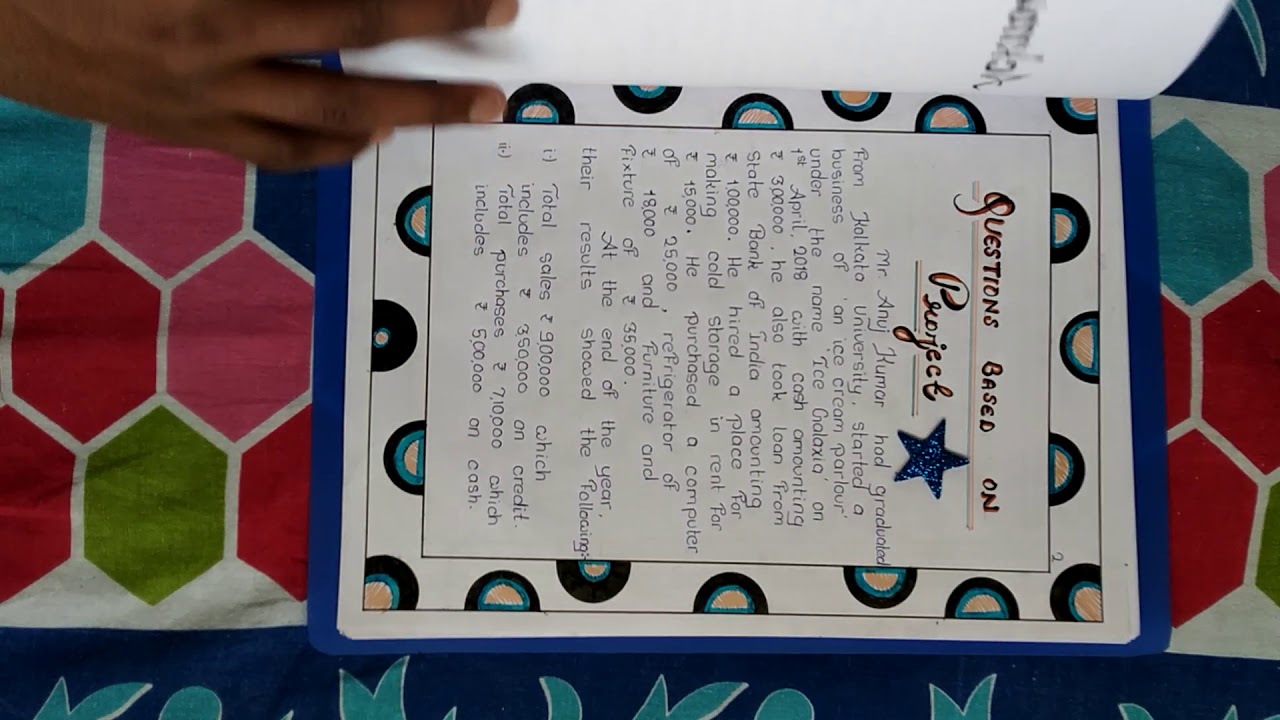 2
QUESTIONS BASED ON
Project
Mr. Anuj Kumar had graduated
From Kalkata University, started a
business of 'an ice cream parlour'
under the name 'Ice Galaxia' on
1st April, 2018 with cash amounting
₹ 3,00,000, he also took loan From
State Bank of India amounting
₹ 1,00,000. He hired a place For
making cold storage in rent For
₹ 15,000. He purchased a computer
of ₹ 25,000, refrigerator of
₹ 18,000 and Furniture and
Fixture of ₹ 35,000.
At the end of the year,
their results showed the Following:
i) Total sales ₹ 9,00,000 which
includes ₹ 3,50,000 on credit.
ii) Total purchases ₹ 7,10,000 which
includes ₹ 5,00,000 on cash.